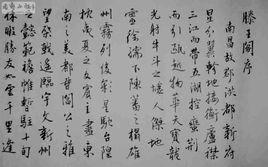 滕王閣序
南昌故郡洪都新府
星分翼軫地接衡廬襟
三江而帶五湖控蠻荊
而引甌越物華天寶龍
光射牛斗之墟人傑地
靈徐孺下陳蕃之榻雄
州霧列俊彩星馳臺隍
枕夷夏之交賓主盡東
南之美都督閻公之雅
望棨戟遙臨宇文新州
之懿範襜帷暫駐十旬
休暇勝友如雲千里逢